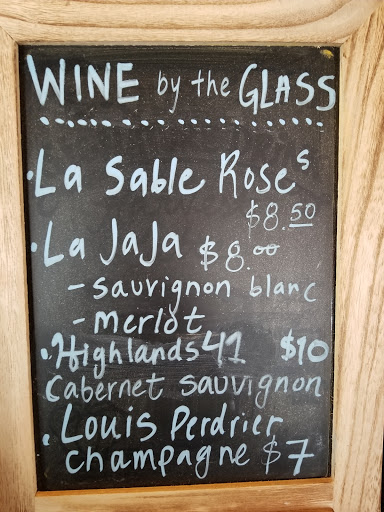 WINE by the GLASS
La Sable Roses
$8.50
La JaJa $8.00
- sauvignon blanc
- merlot
Highlands 41 $10
Cabernet sauvignon
Louis Perdrier
champagne $7